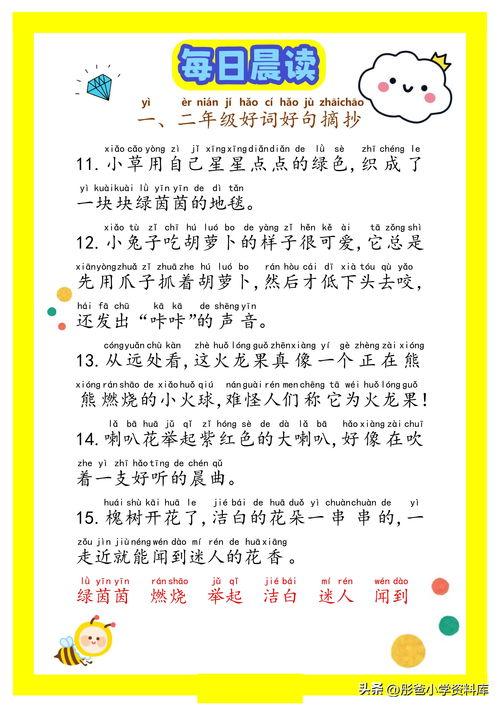 每日晨读
yì èr nián jí hǎo cí hǎo jù zhāichāo
一、二年级好词好句摘抄
xiǎo cǎo yòng zì jǐ xīng xīng diǎn diǎn de lǜ sè zhī chéng le
11. 小草用自己星星点点的绿色,织成了
yí kuàikuài lǜ yīn yīn de dì tǎn
一块块绿茵茵的地毯。
xiǎo tù zi chī hú luó bo de yàng zi hěn kě ài tā zǒng shì
12. 小兔子吃胡萝卜的样子很可爱,它总是
xiānyòngzhuǎ zi zhuā zhe hú luó bo rán hòu cái dī xià tóu qù yǎo
先用爪子抓着胡萝卜,然后才低下头去咬,
hái fā chū kā kā de shēng yīn
还发出“咔咔”的声音。
cóngyuǎn chù kàn zhè huǒ lóng guǒ zhēnxiàng yí gè zhèng zài xióng
13. 从远处看,这火龙果真像一个正在熊
xióng rán shāo de xiǎo huǒ qiú nán guài rén men chēng tā wéi huǒ lóng guǒ
熊燃烧的小火球,难怪人们称它为火龙果!
lǎ bā huā jǔ qǐ zǐ hóng sè de dà lǎ bā hǎo xiàng zài chuī
14. 喇叭花举起紫红色的大喇叭,好像在吹
zhe yì zhī hǎo tīng de chén qǔ
着一支好听的晨曲。
huái shù kāi huā le jié bái de huā duǒ yí chuàn chuàn de yì
15. 槐树开花了,洁白的花朵一串串的,一
zǒu jìn jiù néng wén dào mí rén de huā xiāng
走近就能闻到迷人的花香。
lǜ yīn yīn rán shāo jǔ qǐ jié bái mí rén wén dào
绿茵茵 燃烧 举起 洁白 迷人 闻到
头条 @彤爸小学资料库